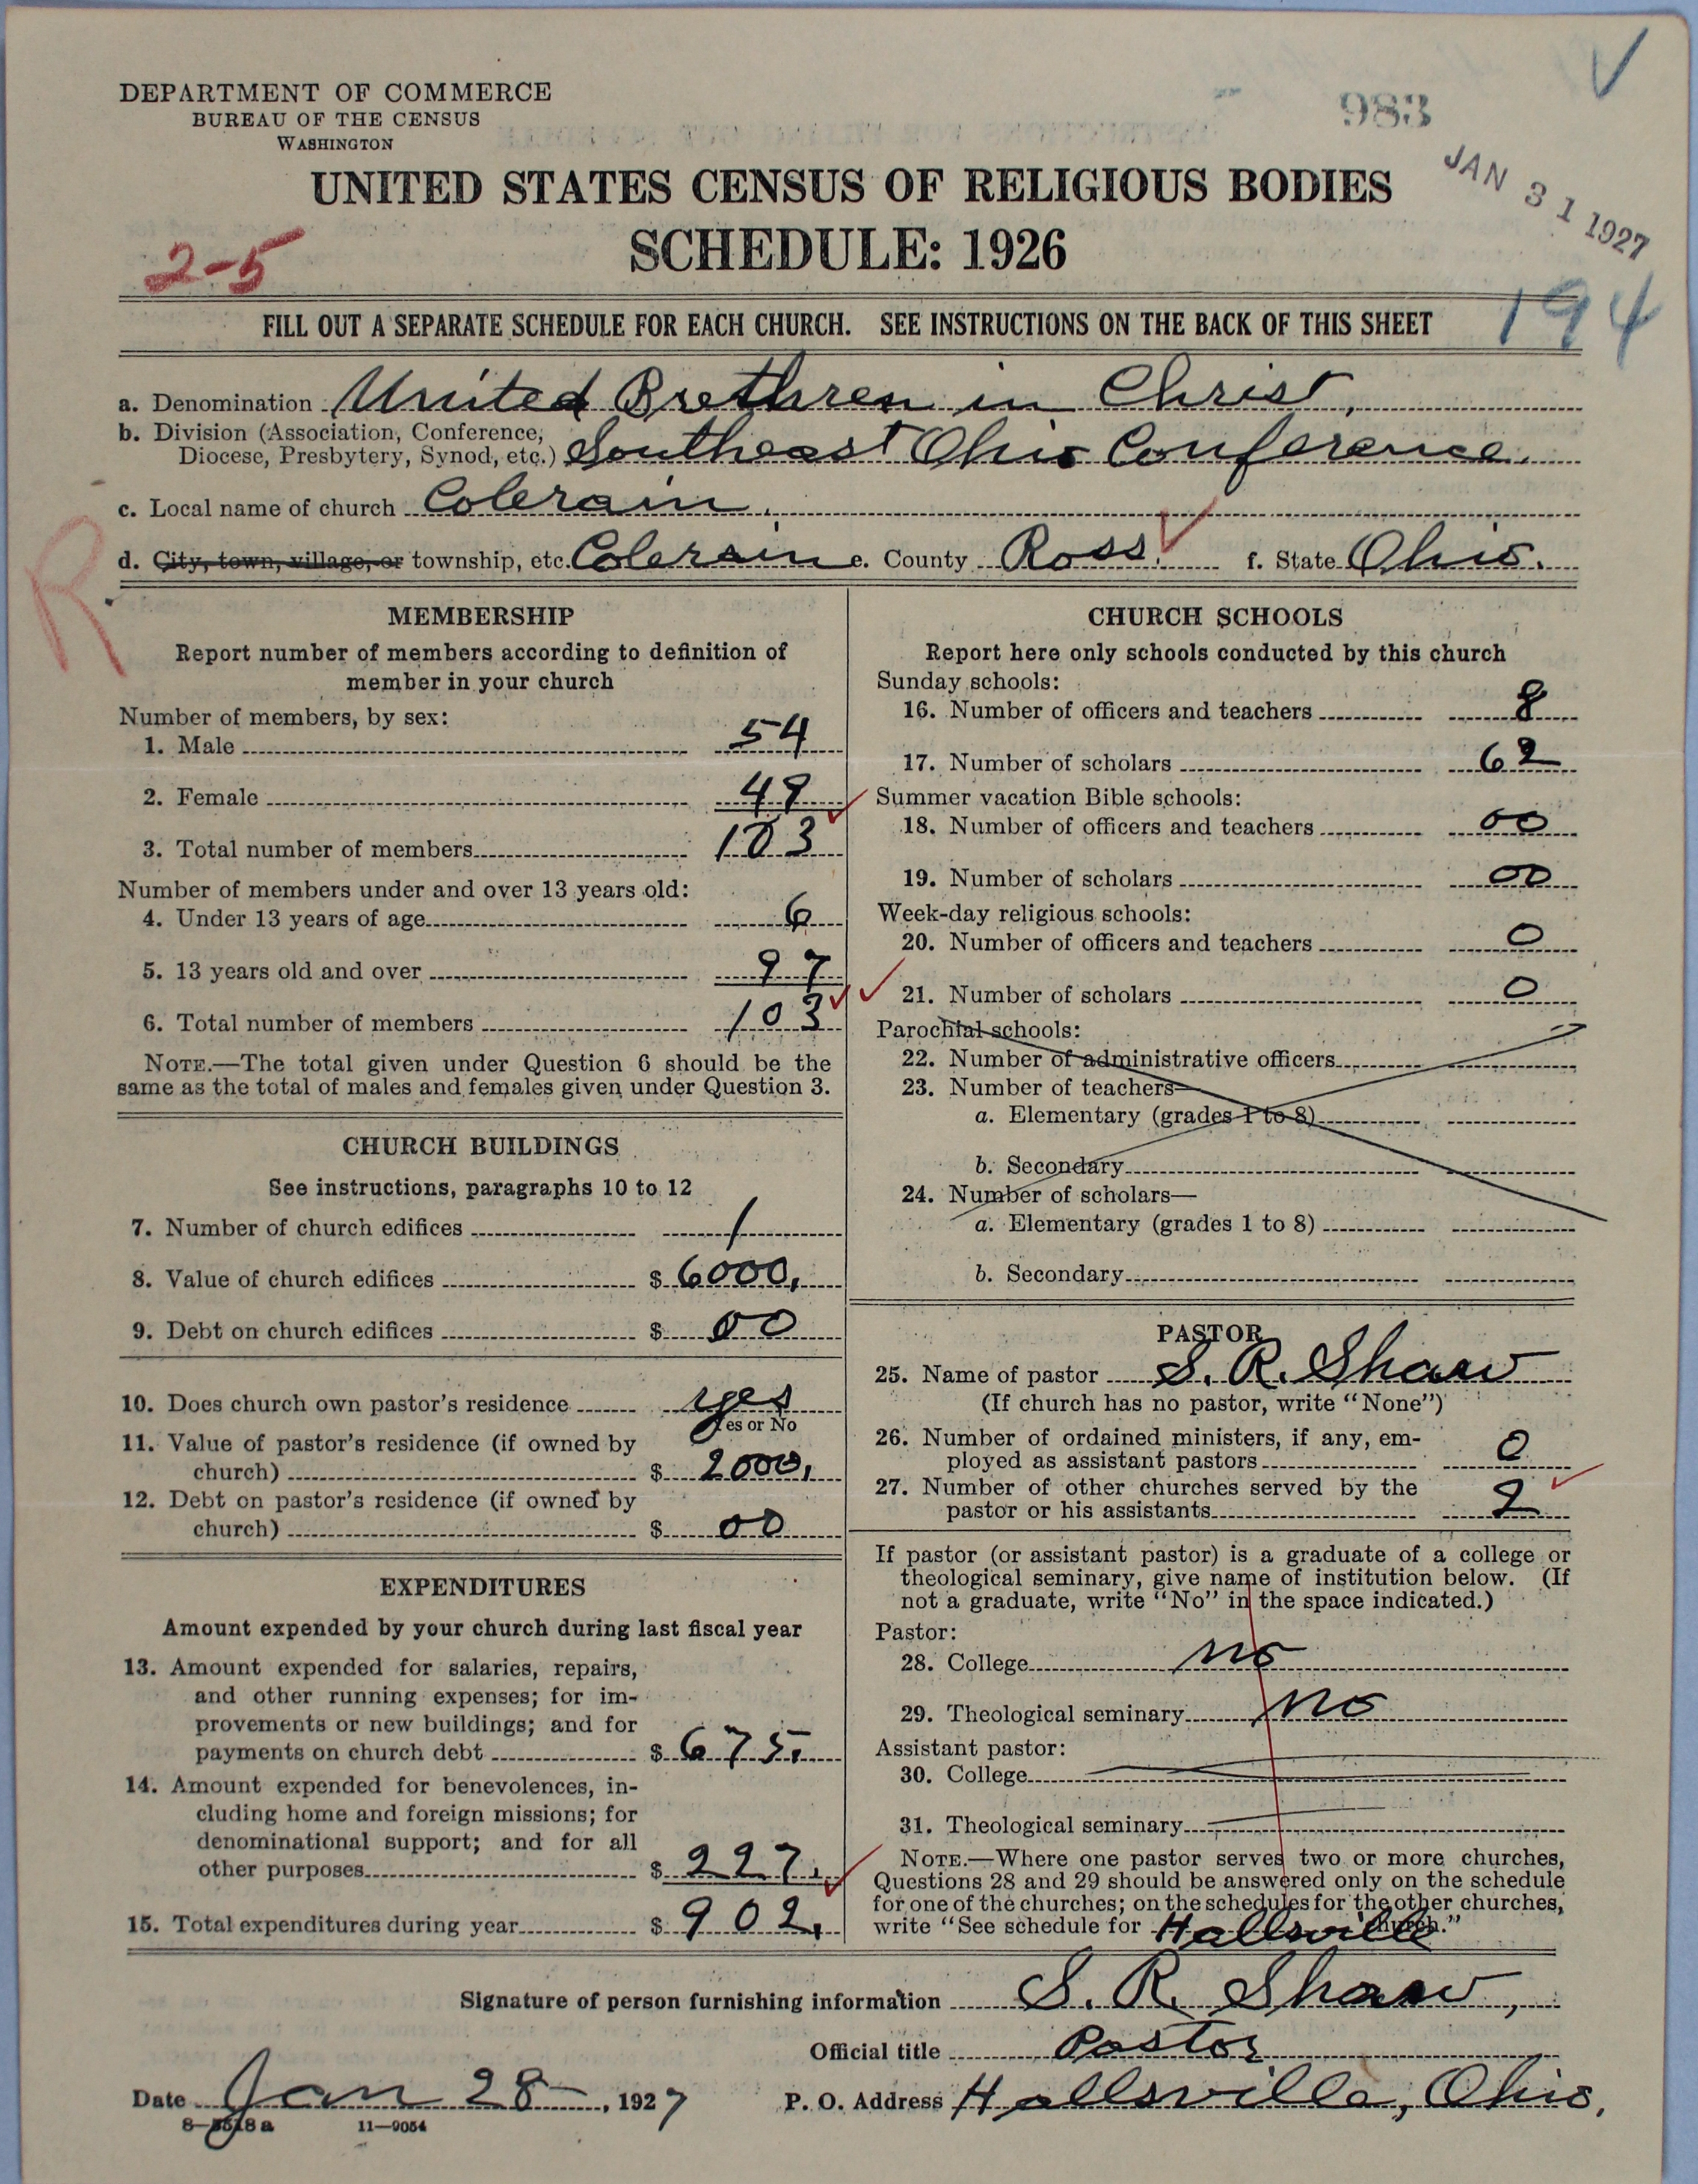 DEPARTMENT OF COMMERCE
BUREAU OF THE CENSUS
WASHINGTON
983
JAN 31 1927
UNITED STATES CENSUS OF RELIGIOUS BODIES
SCHEDULE: 1926
2-5
194
FILL OUT A SEPARATE SCHEDULE FOR EACH CHURCH. SEE INSTRUCTIONS ON THE BACK OF THIS SHEET
a. Denomination United Brethren in Christ,
b. Division (Association, Conference,
Diocese, Presbytery, Synod, etc.) Southeast Ohio Conference.
c. Local name of church Colerain.
R
d. City, town, village, or township, etc. Colerain e. County Ross. f. State Ohio.
MEMBERSHIP
Report number of members according to definition of
member in your church
Number of members, by sex:
1. Male 54
2. Female 49
3. Total number of members 103
Number of members under and over 13 years old:
4. Under 13 years of age 6
5. 13 years old and over 97
6. Total number of members 103
NOTE.—The total given under Question 6 should be the
same as the total of males and females given under Question 3.
CHURCH BUILDINGS
See instructions, paragraphs 10 to 12
7. Number of church edifices 1
8. Value of church edifices $ 6000.
9. Debt on church edifices $ 00
10. Does church own pastor's residence yes
Yes or No
11. Value of pastor's residence (if owned by
church) $ 2000.
12. Debt on pastor's residence (if owned by
church) $ 00
EXPENDITURES
Amount expended by your church during last fiscal year
13. Amount expended for salaries, repairs,
and other running expenses; for im-
provements or new buildings; and for
payments on church debt $ 675.
14. Amount expended for benevolences, in-
cluding home and foreign missions; for
denominational support; and for all
other purposes $ 227.
15. Total expenditures during year $ 902.
CHURCH SCHOOLS
Report here only schools conducted by this church
Sunday schools:
16. Number of officers and teachers 8
17. Number of scholars 62
Summer vacation Bible schools:
18. Number of officers and teachers 00
19. Number of scholars 00
Week-day religious schools:
20. Number of officers and teachers 0
21. Number of scholars 0
Parochial schools:
22. Number of administrative officers
23. Number of teachers—
a. Elementary (grades 1 to 8)
b. Secondary
24. Number of scholars—
a. Elementary (grades 1 to 8)
b. Secondary
PASTOR
25. Name of pastor S. R. Shaw
(If church has no pastor, write "None")
26. Number of ordained ministers, if any, em-
ployed as assistant pastors 0
27. Number of other churches served by the
pastor or his assistants 2
If pastor (or assistant pastor) is a graduate of a college or
theological seminary, give name of institution below. (If
not a graduate, write "No" in the space indicated.)
Pastor:
28. College no
29. Theological seminary no
Assistant pastor:
30. College
31. Theological seminary
NOTE.—Where one pastor serves two or more churches,
Questions 28 and 29 should be answered only on the schedule
for one of the churches; on the schedules for the other churches,
write "See schedule for Hallsville church."
Signature of person furnishing information S. R. Shaw,
Official title Pastor
Date Jan 28, 1927 P. O. Address Hallsville, Ohio.
8—5518 a 11—9054